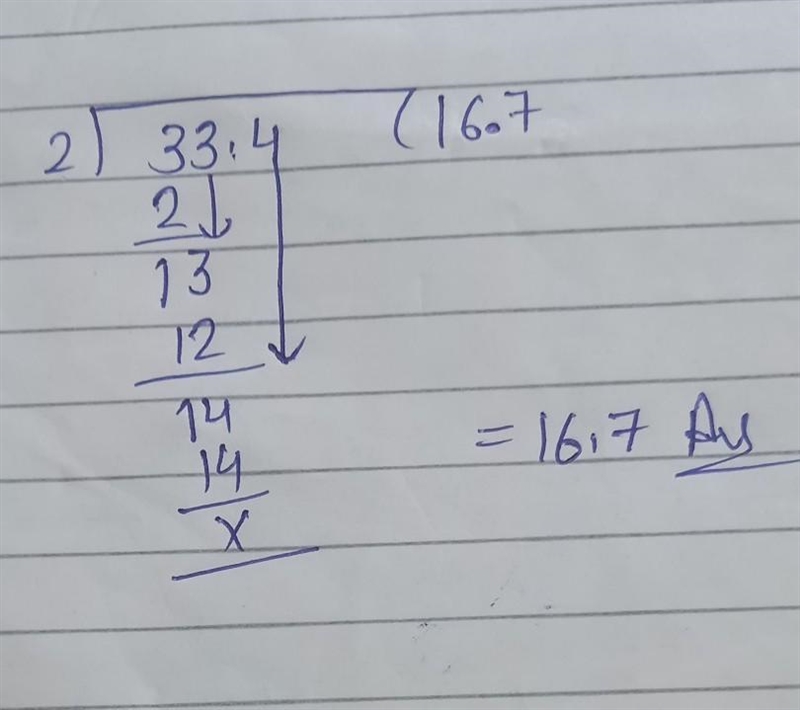 2) 33.4 (16.7
2
13
12
14
14
x
= 16.7 Ans